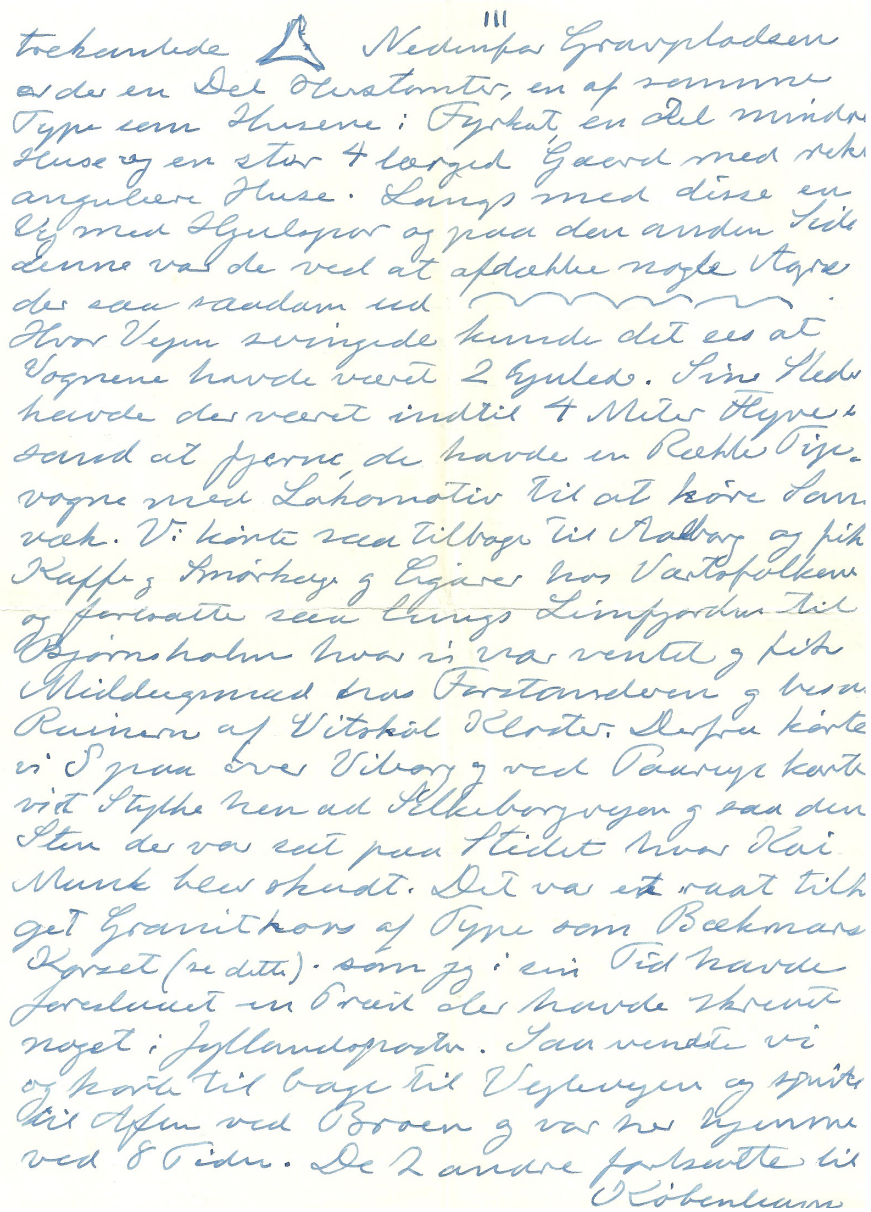 III
trekantede Nedenfor Gravpladsen
er der en Del Hustomter, en af samme
Type som Husene i Fyrkat, en Del mindre
Huse og en stor 4 længed Gaard med rekt
angulære Huse. Langs med disse en
Vej med Hjulspor og paa den anden Side
denne var de ved at afdække nogle Agre
der saa saadan ud
Hvor Vejen svingede kunde det ses at
Vognene havde været 2 Hjulede. Sine Steder
havde der været indtil 4 Meter Flyve
sand at fjerne, de havde en Række Tip-
vogne med Lokomotiv til at køre San
væk. Vi kørte saa tilbage til Aalborg og fik
Kaffe og Smørkage og Cigarer hos Værtsfolkene
og fortsatte saa langs Limfjorden til
Bjørnsholm hvor vi var ventet og fik
Middagsmad hos Forstanderen og besaa
Ruinern af Vitskøl Kloster. Derfra kørte
vi S paa over Viborg og ved Taarup kørte
vi et Stykke hen ad Silkeborgvejen og saa den
Sten der var sat paa Stedet hvor Kai
Munk blev skudt. Det var et raat tilh
get Granitkors af Type som Bækmars
Korset (se dette). som jeg i sin Tid havde
foreslaaet en Præst der havde skrevet
noget i Jyllandsposten. Saa vendte vi
og kørte tilbage til Vejlevejen og spiste
til Aften ved Broen og var her hjemme
ved 8 Tiden. De 2 andre fortsatte til
København